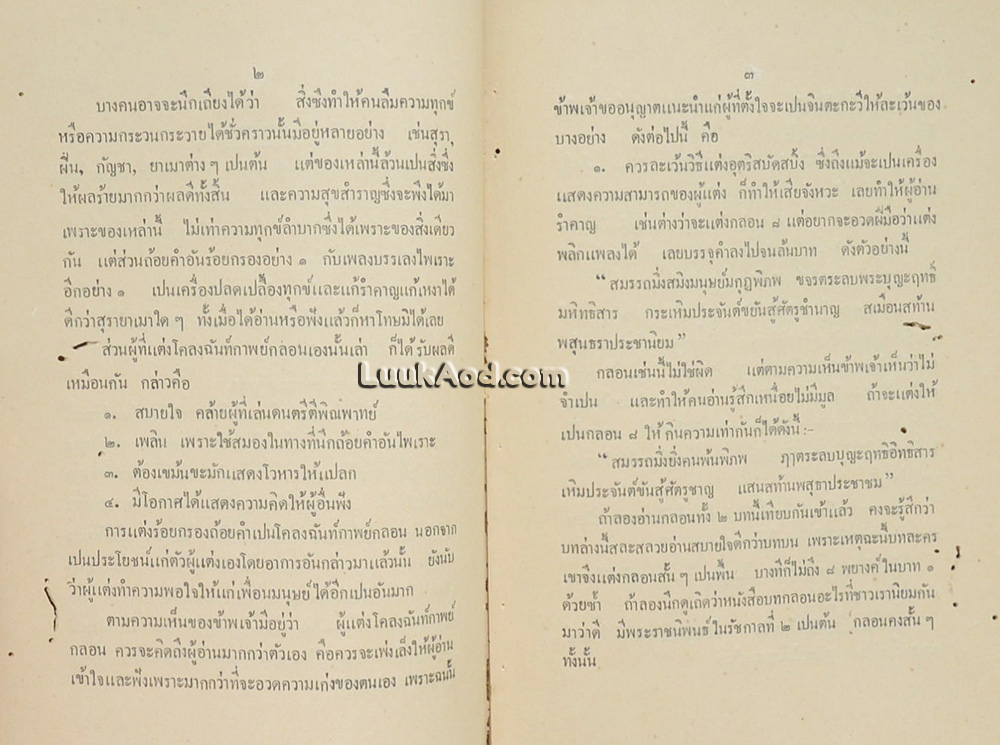 ๒
บางคนอาจจะนึกเถียงได้ว่า สิ่งซึ่งทำให้คนลืมความทุกข์
หรือความกระวนกระวายได้ชั่วคราวนั้นมีอยู่หลายอย่าง เช่นสุรา,
ฝิ่น, กัญชา, ยาเมาต่าง ๆ เปนต้น แต่ของเหล่านี้ล้วนเปนสิ่งซึ่ง
ให้ผลร้ายมากกว่าผลดีทั้งสิ้น และความสุขสำราญซึ่งจะพึงได้มา
เพราะของเหล่านี้ ไม่เท่าความทุกข์ลำบากซึ่งได้เพราะของสิ่งเดียว
กัน แต่ส่วนถ้อยคำอันร้อยกรองอย่าง ๑ กับเพลงบรรเลงไพเราะ
อีกอย่าง ๑ เปนเครื่องปลดเปลื้องทุกข์และแก้รำคาญแก้เหงาได้
ดีกว่าสุรายาเมาใด ๆ ทั้งเมื่อได้อ่านหรือฟังแล้วก็หาโทษมิได้เลย
ส่วนผู้ที่แต่งโคลงฉันท์กาพย์กลอนเองนั้นเล่า ก็ได้รับผลดี
เหมือนกัน กล่าวคือ
๑. สบายใจ คล้ายผู้ที่เล่นดนตรีดีพิณพาทย์
๒. เพลิน เพราะใช้สมองในทางที่นึกถ้อยคำอันไพเราะ
๓. ต้องเขม้นขะมักแสดงโวหารให้แปลก
๔. มีโอกาศได้แสดงความคิดให้ผู้อื่นฟัง
การแต่งร้อยกรองถ้อยคำเปนโคลงฉันท์กาพย์กลอน นอกจาก
เปนประโยชน์แก่ตัวผู้แต่งเองโดยอาการอันกล่าวมาแล้วนั้น ยังนับ
ว่าผู้แต่งทำความพอใจให้แก่เพื่อนมนุษย์ได้อีกเปนอันมาก
ตามความเห็นของข้าพเจ้ามีอยู่ว่า ผู้แต่งโคลงฉันท์กาพย์
กลอน ควรจะคิดถึงผู้อ่านมากกว่าตัวเอง คือควรจะเพ่งเล็งให้ผู้อ่าน
เข้าใจและฟังเพราะมากกว่าที่จะอวดความเก่งของตนเอง เพราะฉนั้น
๓
ข้าพเจ้าขออนุญาตแนะนำแก่ผู้ที่ตั้งใจจะเปนจินตะกะวีให้ละเว้นของ
บางอย่าง ดังต่อไปนี้ คือ
๑. ควรละเว้นวิธีแต่งอุตริสบัดสบิ้ง ซึ่งถึงแม้จะเปนเครื่อง
แสดงความสามารถของผู้แต่ง ก็ทำให้เสียจังหวะ เลยทำให้ผู้อ่าน
รำคาญ เช่นต่างว่าจะแต่งกลอน ๘ แต่อยากจะอวดฝีมือว่าแต่ง
พลิกแพลงได้ เลยบรรจุคำลงไปจนล้นบาท ดังตัวอย่างนี้
“สมรรถมิ่งสมิงมนุษย์มกุฎพิภพ ขจรตระลบพระบุญะฤทธิ์
มหิทธิสาร กระเหิมประจันต์ขยันสู้ศัตรูชำนาญ สเมือนสท้าน
พสุนธราประชานิยม”
กลอนเช่นนี้ไม่ใช่ผิด แต่ตามความเห็นข้าพเจ้าเห็นว่าไม่
จำเปน และทำให้คนอ่านรู้สึกเหนื่อยไม่มีมูล ถ้าจะแต่งให้
เปนกลอน ๘ ให้กินความเท่ากันก็ได้ดังนี้:-
“สมรรถมิ่งยิ่งคนพ้นพิภพ ฦๅตระลบบุญะฤทธิอิทธิสาร
เหิมประจันต์ขันสู้ศัตรูชาญ แสนสท้านพสุธาประชาชม”
ถ้าลองอ่านกลอนทั้ง ๒ บทนี้เทียบกันเข้าแล้ว คงจะรู้สึกว่า
บทล่างนี้สละสลวยอ่านสบายใจดีกว่าบทบน เพราะเหตุฉะนี้บทละคร
เขาจึงแต่งกลอนสั้น ๆ เปนพื้น บางทีก็ไม่ถึง ๘ พยางค์ในบาท ๑
ด้วยซ้ำ ถ้าลองนึกดูเถิดว่าหนังสือบทกลอนอะไรที่ชาวเรานิยมกัน
มาว่าดี มีพระราชนิพนธ์ในรัชกาลที่ ๒ เปนต้น กลอนคงสั้น ๆ
ทั้งนั้น
LuukAod.com